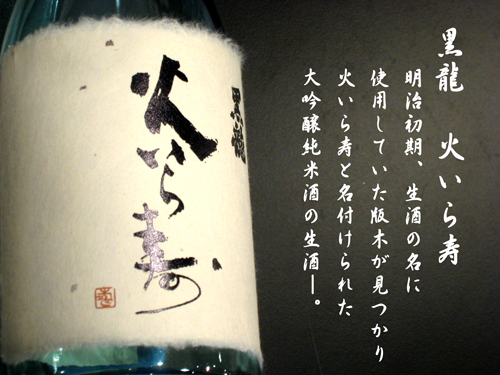 黒龍 火いら寿
明治初期、生酒の名に
使用していた版木が見つかり
火いら寿と名付けられた
大吟醸純米酒の生酒―。
黒龍
火いら寿